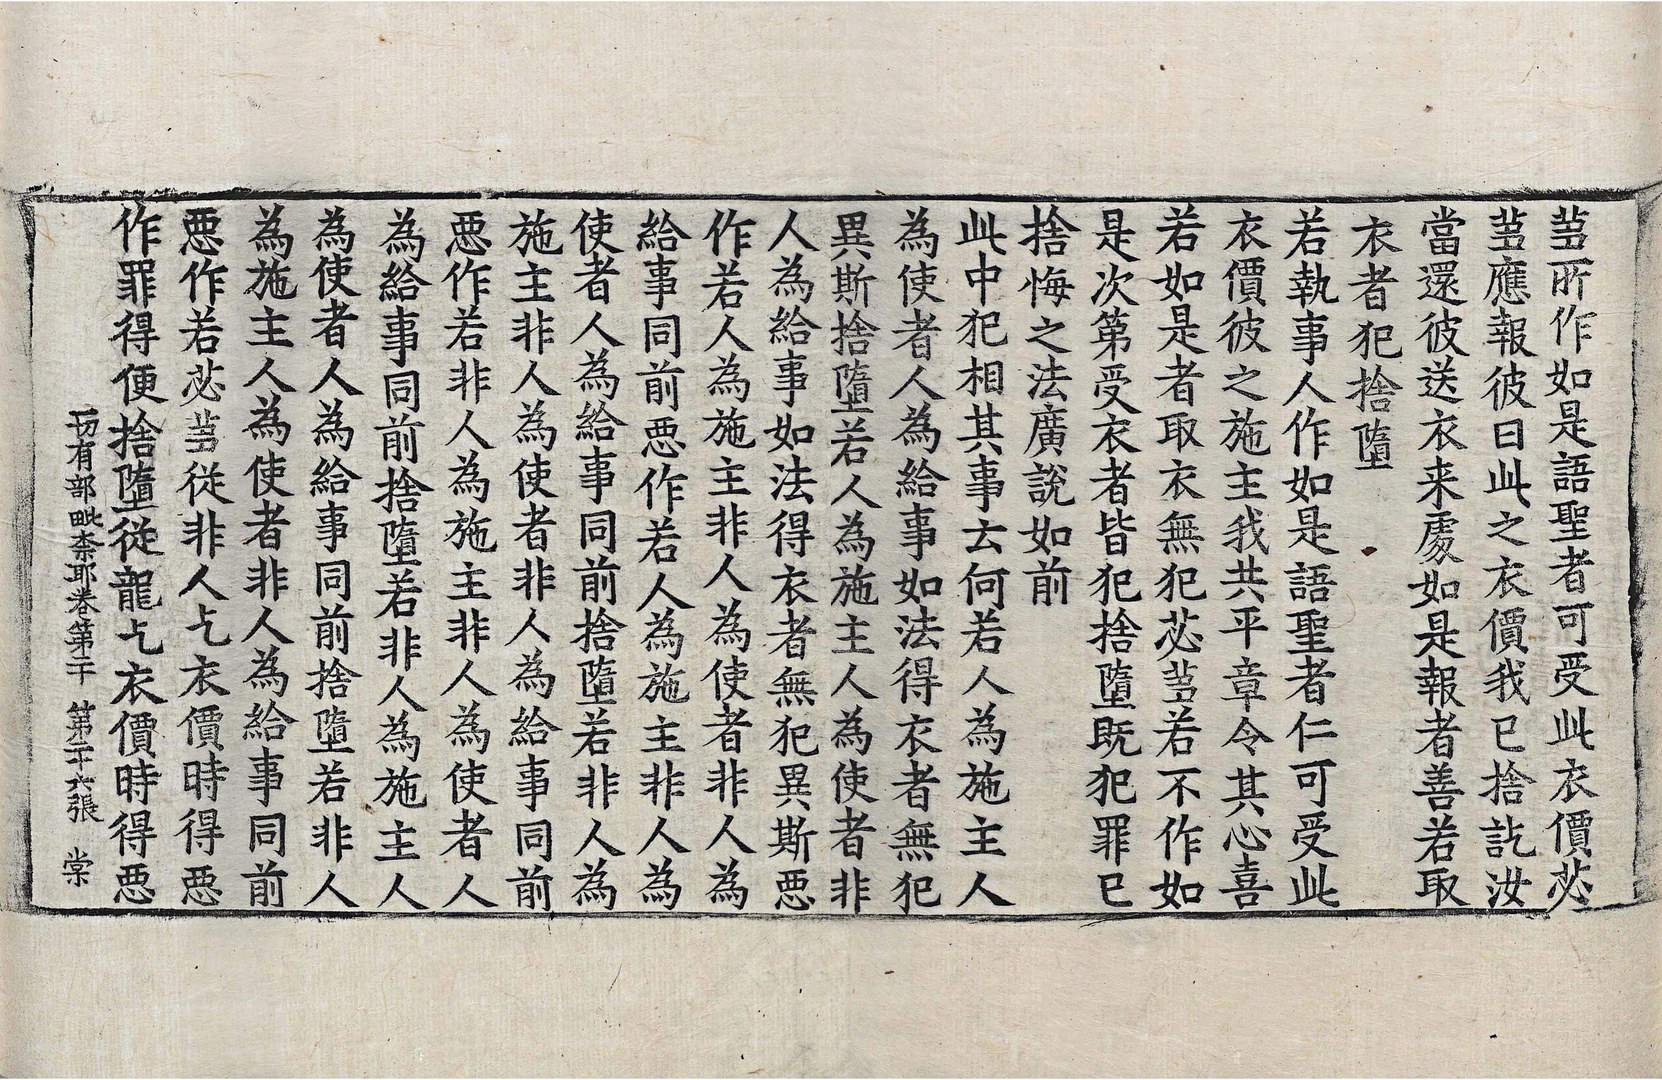 蒭所作如是語聖者可受此衣價苾
蒭應報彼曰此之衣價我已捨訖汝
當還彼送衣来處如是報者善若取
衣者犯捨墮
若執事人作如是語聖者仁可受此
衣價彼之施主我共平章令其心喜
若如是者取衣無犯苾蒭若不作如
是次第受衣者皆犯捨墮既犯罪已
捨悔之法廣說如前
此中犯相其事云何若人為施主人
為使者人為給事如法得衣者無犯
異斯捨墮若人為施主人為使者非
人為給事如法得衣者無犯異斯惡
作若人為施主非人為使者非人為
給事同前惡作若人為施主非人為
使者人為給事同前捨墮若非人為
施主非人為使者非人為給事同前
惡作若非人為施主非人為使者人
為給事同前捨墮若非人為施主人
為使者人為給事同前捨墮若非人
為施主人為使者非人為給事同前
惡作若苾蒭從非人乞衣價時得惡
作罪得便捨墮從龍乞衣價時得惡
一切有部毗奈耶卷第二十 第二十六張 棠